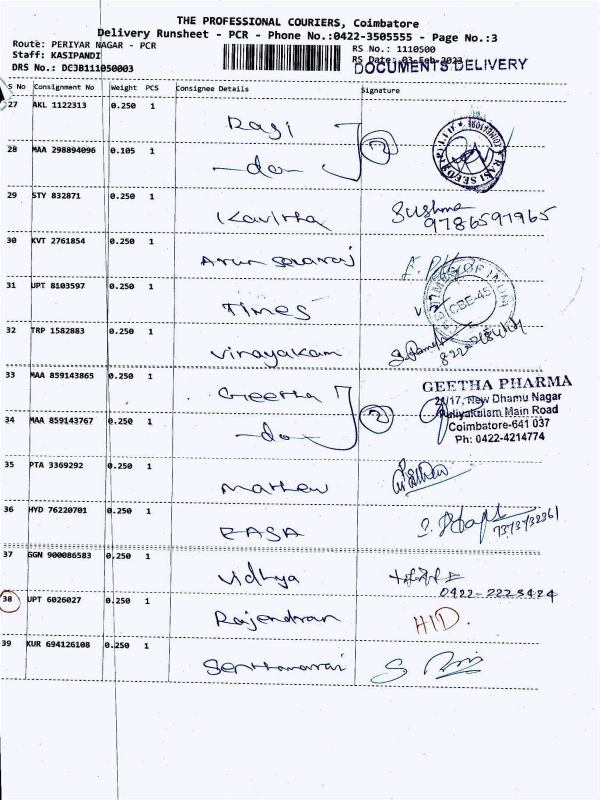 THE PROFESSIONAL COURIERS, Coimbatore
Delivery Runsheet - PCR - Phone No.:0422-3505555 - Page No.:3
Route: PERIYAR NAGAR - PCR
Staff: KASIPANDI
DRS No.: DCJB111050003
RS No.: 1110500
RS Date: 03-Feb-2023
DOCUMENTS DELIVERY
S No Consignment No Weight PCS Consignee Details Signature
27 AKL 1122313 0.250 1 Rasi
28 MAA 298894096 0.105 1 -do- 2
RASI SEEDS
29 STY 832871 0.250 1 Kavitha Sushma
9786597965
30 KVT 2761854 0.250 1 Arun
31 UPT 8103597 0.250 1 Times
TIMES OF INDIA
CBE-45
32 TRP 1582883 0.250 1 Vinayakam
33 MAA 859143865 0.250 1 Geetha
34 MAA 859143767 0.250 1 -do- 2
GEETHA PHARMA
21/17, New Dhamu Nagar
Puliyakulam Main Road
Coimbatore-641 037
Ph: 0422-4214774
35 PTA 3369292 0.250 1 Mathew
36 HYD 76220701 0.250 1 RASA
37 GGN 900086583 0.250 1 Vidhya
0422-2223424
38 UPT 6026027 0.250 1 Rajendran HID.
39 KUR 694126108 0.250 1 Senthamarai